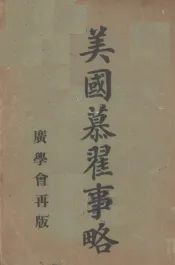 美國慕翟事略
廣學會再版